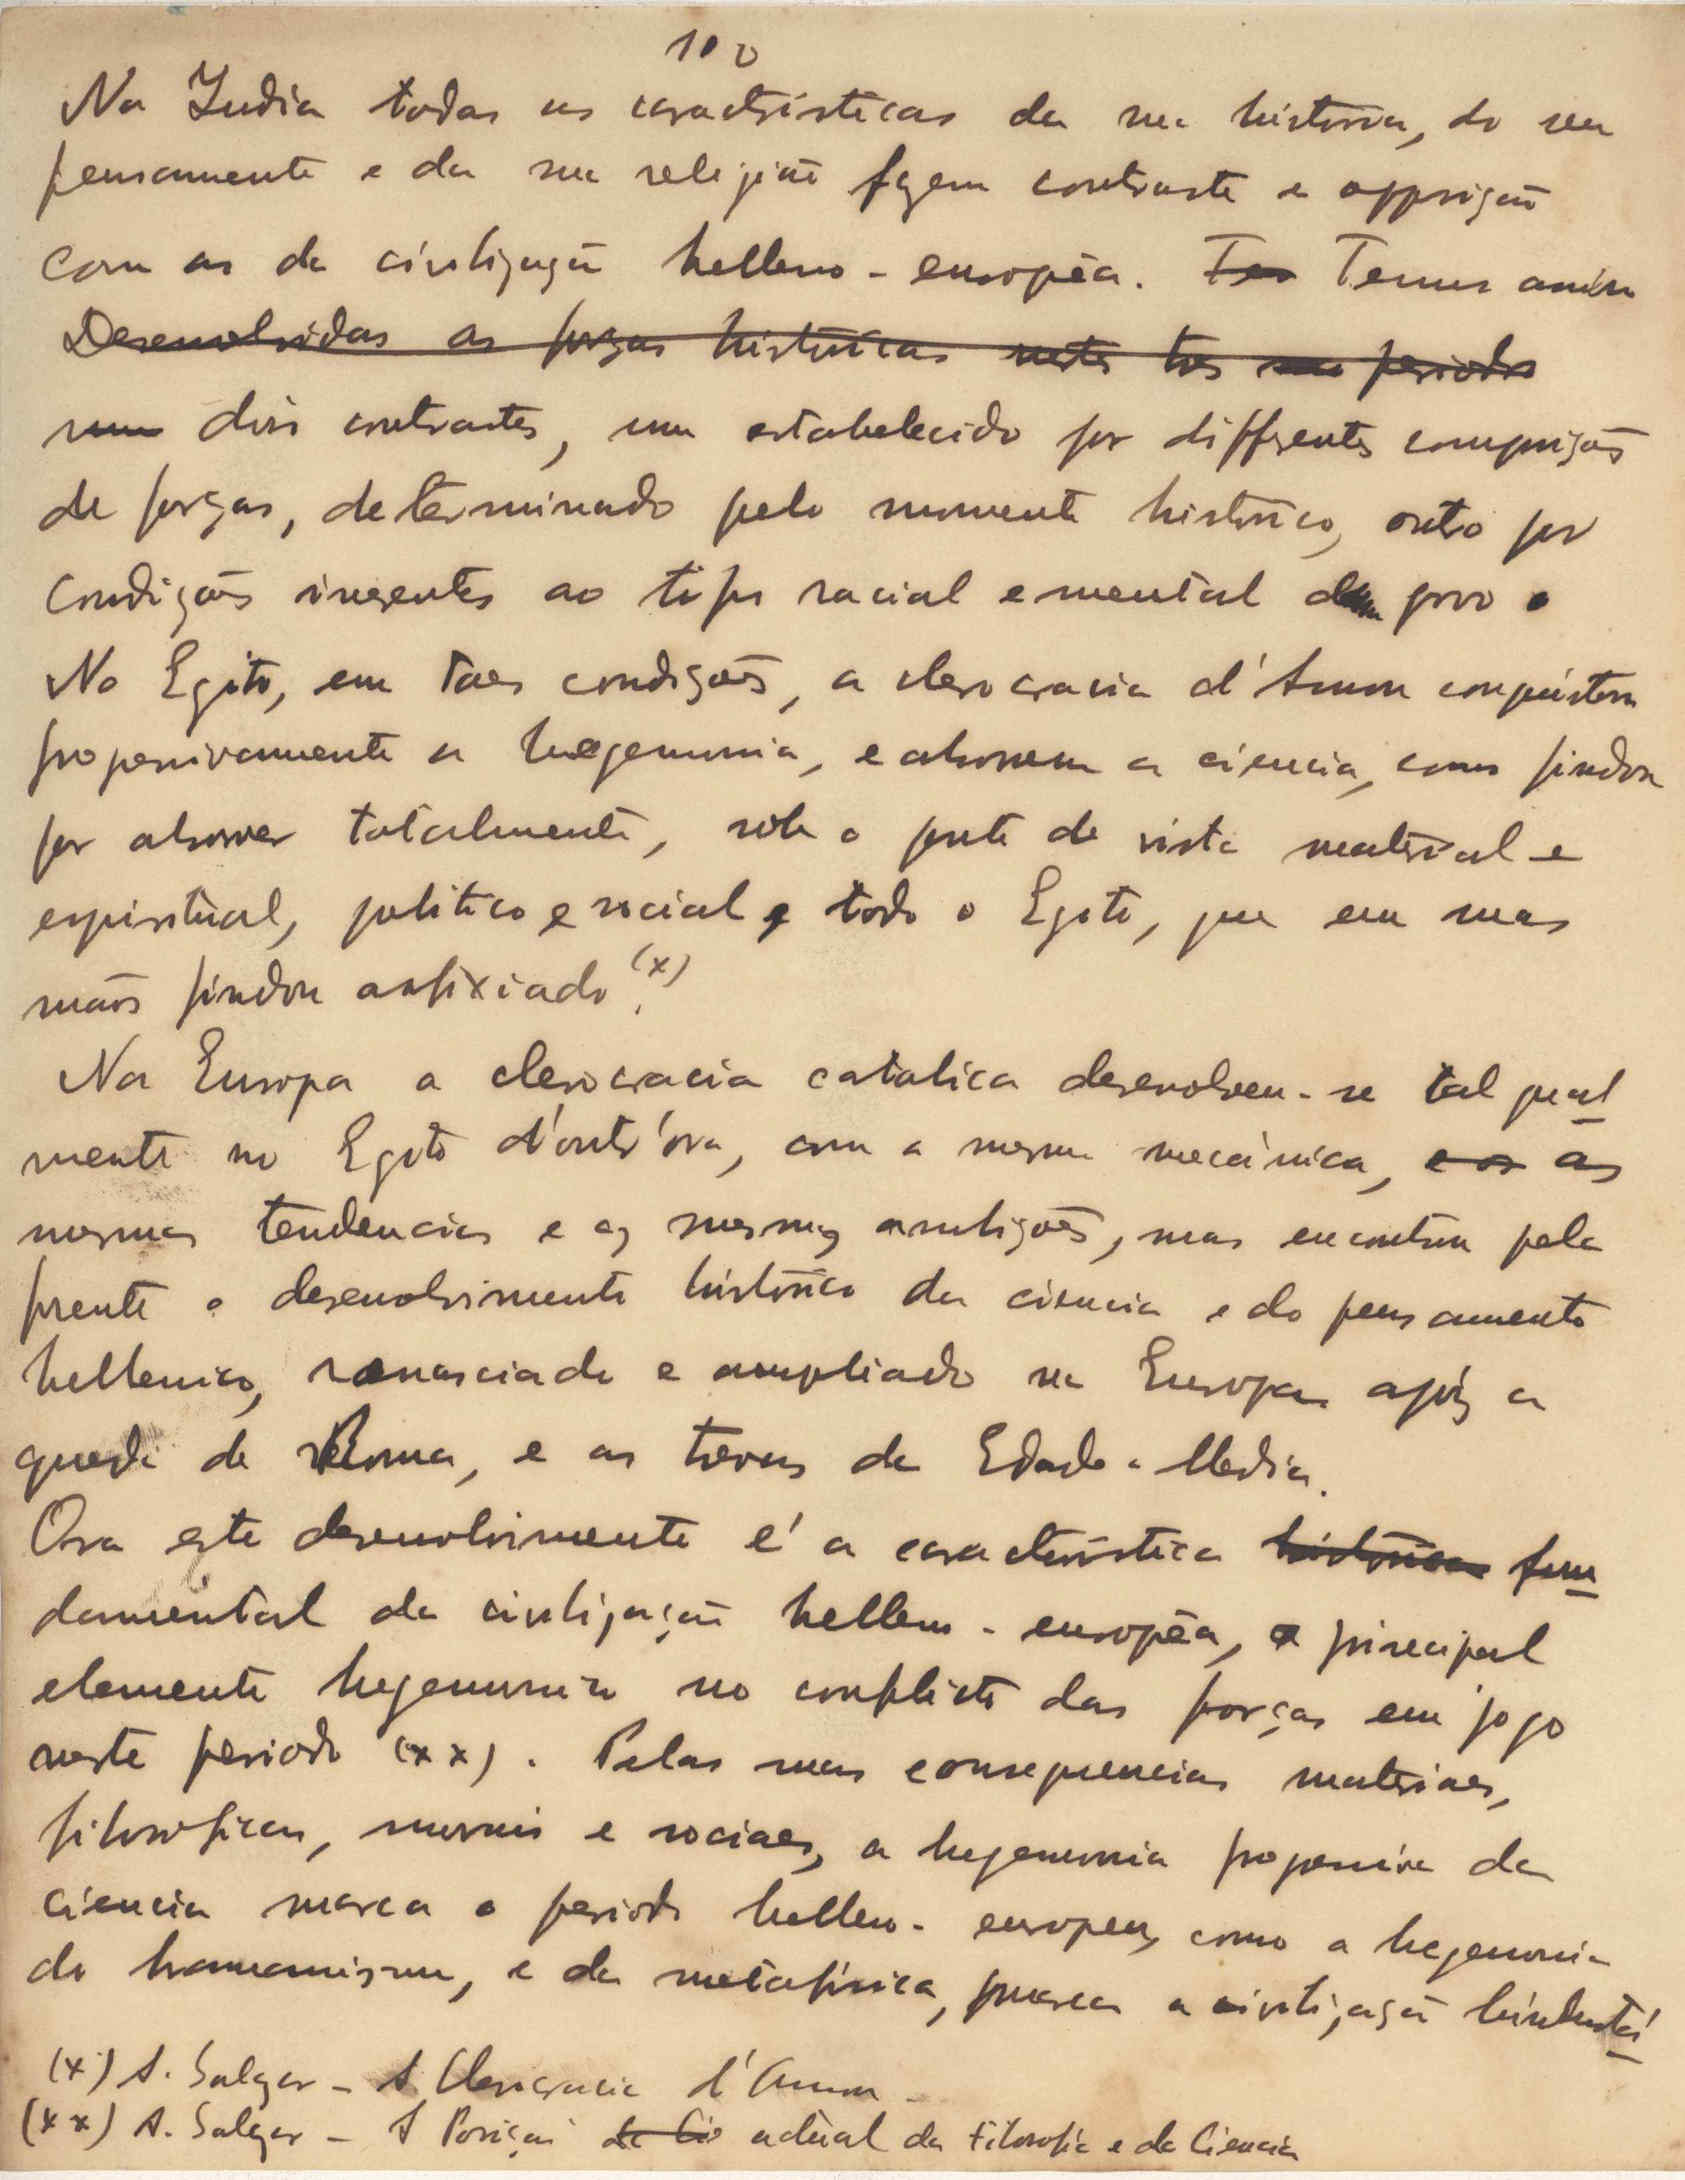 100
Na India todas as caracteristicas da sua historia, do seu
pensamento e da sua religião fazem contraste e opposição
com as da civilização helleno-européa. Tes Temos assim
Desenvolvidas as forças históricas nestes tres periodos
num dois contrastes, um estabelecido por differentes composições
de forças, determinado pelo momento histórico, outro por
condições inerentes ao tipo racial e mental dum povo.
No Egito, em taes condições, a clerocracia d'Amon conquistou
progressivamente a hegemonia, e absorveu a ciencia, como findou
por absorver totalmente, sob o ponto de vista material e
espiritual, politico e social e todo o Egito, que em suas
mãos findou asfixiado (x).
Na Europa a clerocracia catolica desenvolveu-se tal qual
mente no Egito d'outr'ora, com a mesma mecánica, e as as
mesmas tendencias e as mesmas ambições, mas encontrou pela
frente o desenvolvimento histórico da ciencia e do pensamento
hellenico, renasciado e ampliado na Europa após a
queda de Roma, e as trevas da Edade-Media.
Ora este desenvolvimento é a caracteristica histórica fun
damental da civilização helleno-européa, o principal
elemento hegemonico no conflicto das forças em jogo
neste periodo (xx). Pelas suas consequencias materiaes,
filosoficas, moraes e sociaes, a hegemonia progressiva da
ciencia marca o periodo helleno-europeu, como a hegemonia
do bramanismo, e da metafisica, marca a civilização hindustá
(x) A. Salger - A Clerocracia d'Amon
(xx) A. Salger - A Posição da Ci actual da Filosofia e da Ciencia